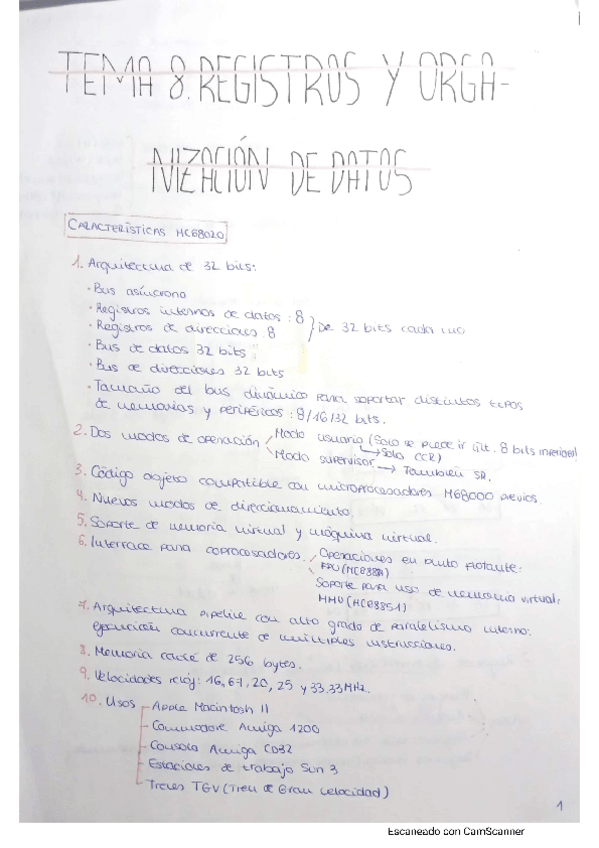 TEMA 8. REGISTROS Y ORGA-
NIZACIÓN DE DATOS
CARACTERÍSTICAS MC68020
1. Arquitectura de 32 bits:
· Bus asíncrono
· Registros internos de datos: 8
· Registros de direcciones: 8 } De 32 bits cada uno
· Bus de datos 32 bits
· Bus de direcciones 32 bits
· Tamaño del bus dinámico para soportar distintos tipos
de memorias y periféricos: 8/16/32 bits.
2. Dos modos de operación Modo usuario (Solo se puede ir últ. 8 bits inferiores)
→ Solo CCR)
Modo supervisor → También SR.
3. Código objeto compatible con microprocesadores M68000 previos.
4. Nuevos modos de direccionamiento.
5. Soporte de memoria virtual y máquina virtual.
6. Interface para coprocesadores. Operaciones en punto flotante:
FPU (MC68881)
Soporte para uso de memoria virtual:
MMU (MC68851)
7. Arquitectura pipeline con alto grado de paralelismo interno:
ejecución concurrente de múltiples instrucciones.
8. Memoria caché de 256 bytes.
9. Velocidades reloj: 16,67, 20, 25 y 33,33 MHz.
10. Usos Apple Macintosh II
Commodore Amiga 1200
Consola Amiga CD32
Estaciones de trabajo Sun 3
Trenes TGV (Tren de Gran Velocidad)
1
Escaneado con CamScanner